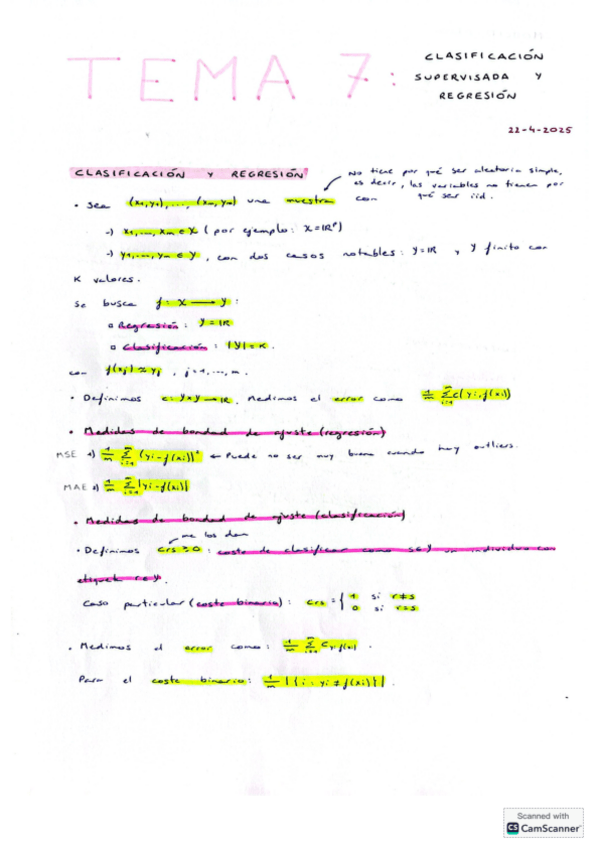 TEMA 7:
CLASIFICACIÓN
SUPERVISADA Y
REGRESIÓN
22-4-2025
CLASIFICACIÓN Y REGRESIÓN
No tiene por qué ser aleatoria simple,
es decir, las variables no tienen por
qué ser iid.
• Sea (x₁,y₁),...,(xₘ,yₘ) una muestra con
-) x₁,...,xₘ ∈ X (por ejemplo: X=ℝᵖ)
-) y₁,...,yₘ ∈ Y, con dos casos notables: Y=ℝ y Y finito con
K valores.
Se busca f: X → Y:
▫ Regresión: Y=ℝ
▫ Clasificación: |Y|=K.
con f(xⱼ)≈yⱼ, j=1,...,m.
• Definimos c: Y×Y→ℝ. Medimos el error como 1/m Σᵢ₌₁ᵐ c(yᵢ,f(xᵢ))
• Medidas de bondad de ajuste (regresión)
MSE 1) 1/m Σᵢ₌₁ᵐ (yᵢ-f(xᵢ))² ← Puede no ser muy buena cuando hay outliers.
MAE 2) 1/m Σᵢ₌₁ᵐ |yᵢ-f(xᵢ)|
• Medidas de bondad de ajuste (clasificación)
me los dan
• Definimos cᵣₛ≥0: coste de clasificar como s∈Y un individuo con
etiqueta r∈Y.
Caso particular (coste binario): cᵣₛ = { 1 si r≠s
0 si r=s
• Medimos el error como: 1/m Σᵢ₌₁ᵐ c yᵢ f(xᵢ).
Para el coste binario: 1/m |{i: yᵢ≠f(xᵢ)}|.
Scanned with
CS CamScanner